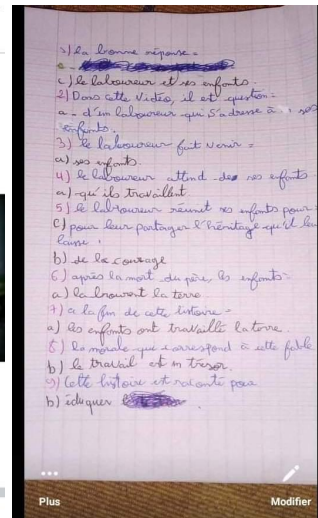 1) la bonne réponse =
c) le laboureur et ses enfants.
2) Dans cette vidéo, il est question =
a - d'un laboureur qui s'adresse à ses
enfants.
3) le laboureur fait venir =
a) ses enfants.
4) le laboureur attend des ses enfants
a) - qu'ils travaillent
5) le laboureur réunit ses enfants pour =
c) pour leur partager l'héritage qu'il leur
laisse.
b) de le courage
6) après la mort du père, les enfants =
a) labourent la terre
7) à la fin de cette histoire =
a) les enfants ont travaillé la terre.
8) la morale qui correspond à cette fable
b) le travail est un trésor.
9) Cette histoire est raconté pour
b) éduquer
Plus
Modifier